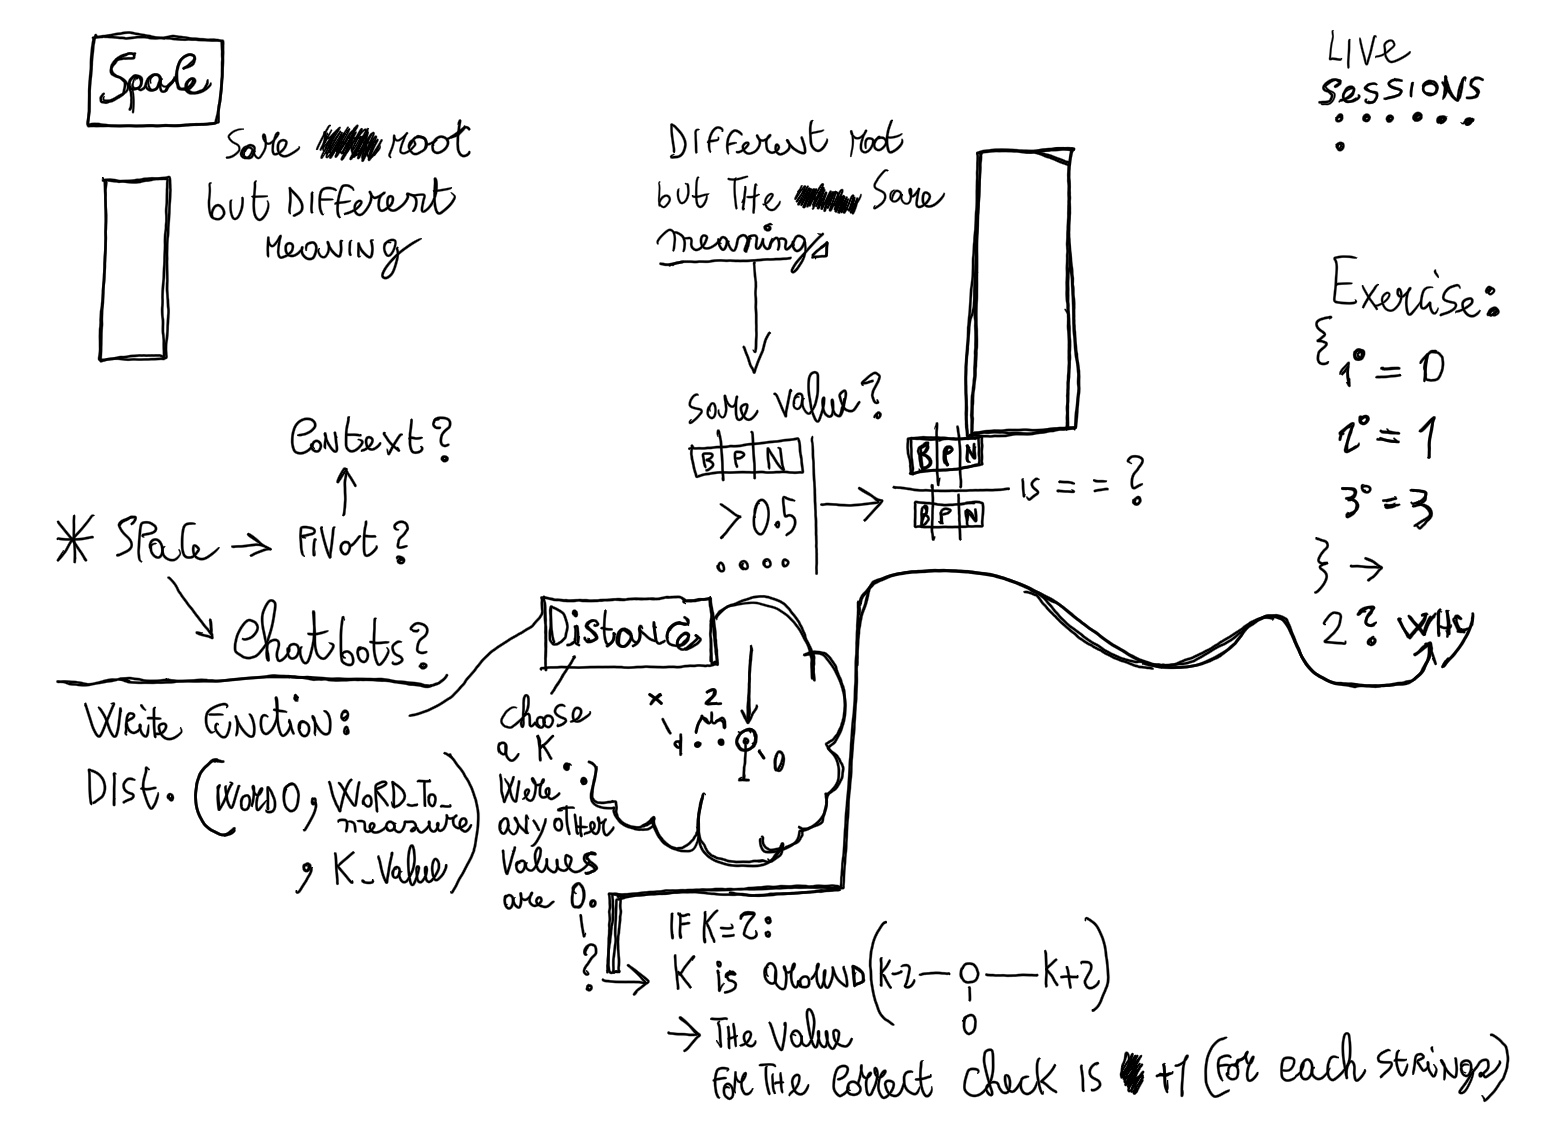 Space
Same root
but Different
Meaning
Different root
but The Same
meaning
Same value?
B P N
> 0.5
B P N
B P N
is = = ?
Live
Sessions
Exercise:
{
1° = 0
2° = 1
3° = 3
} →
2? WHY
Context?
* Space → Pivot?
Chatbots?
Write Function:
Dist. (Word0, Word_To_
measure
, K_Value)
Distance
choose
a K.
Were
any other
Values
are 0.
?
x 2
0
IF K=2:
K is around (K-2 — O — K+2)
0
→ The Value
For The Correct check is +1 (For each strings)